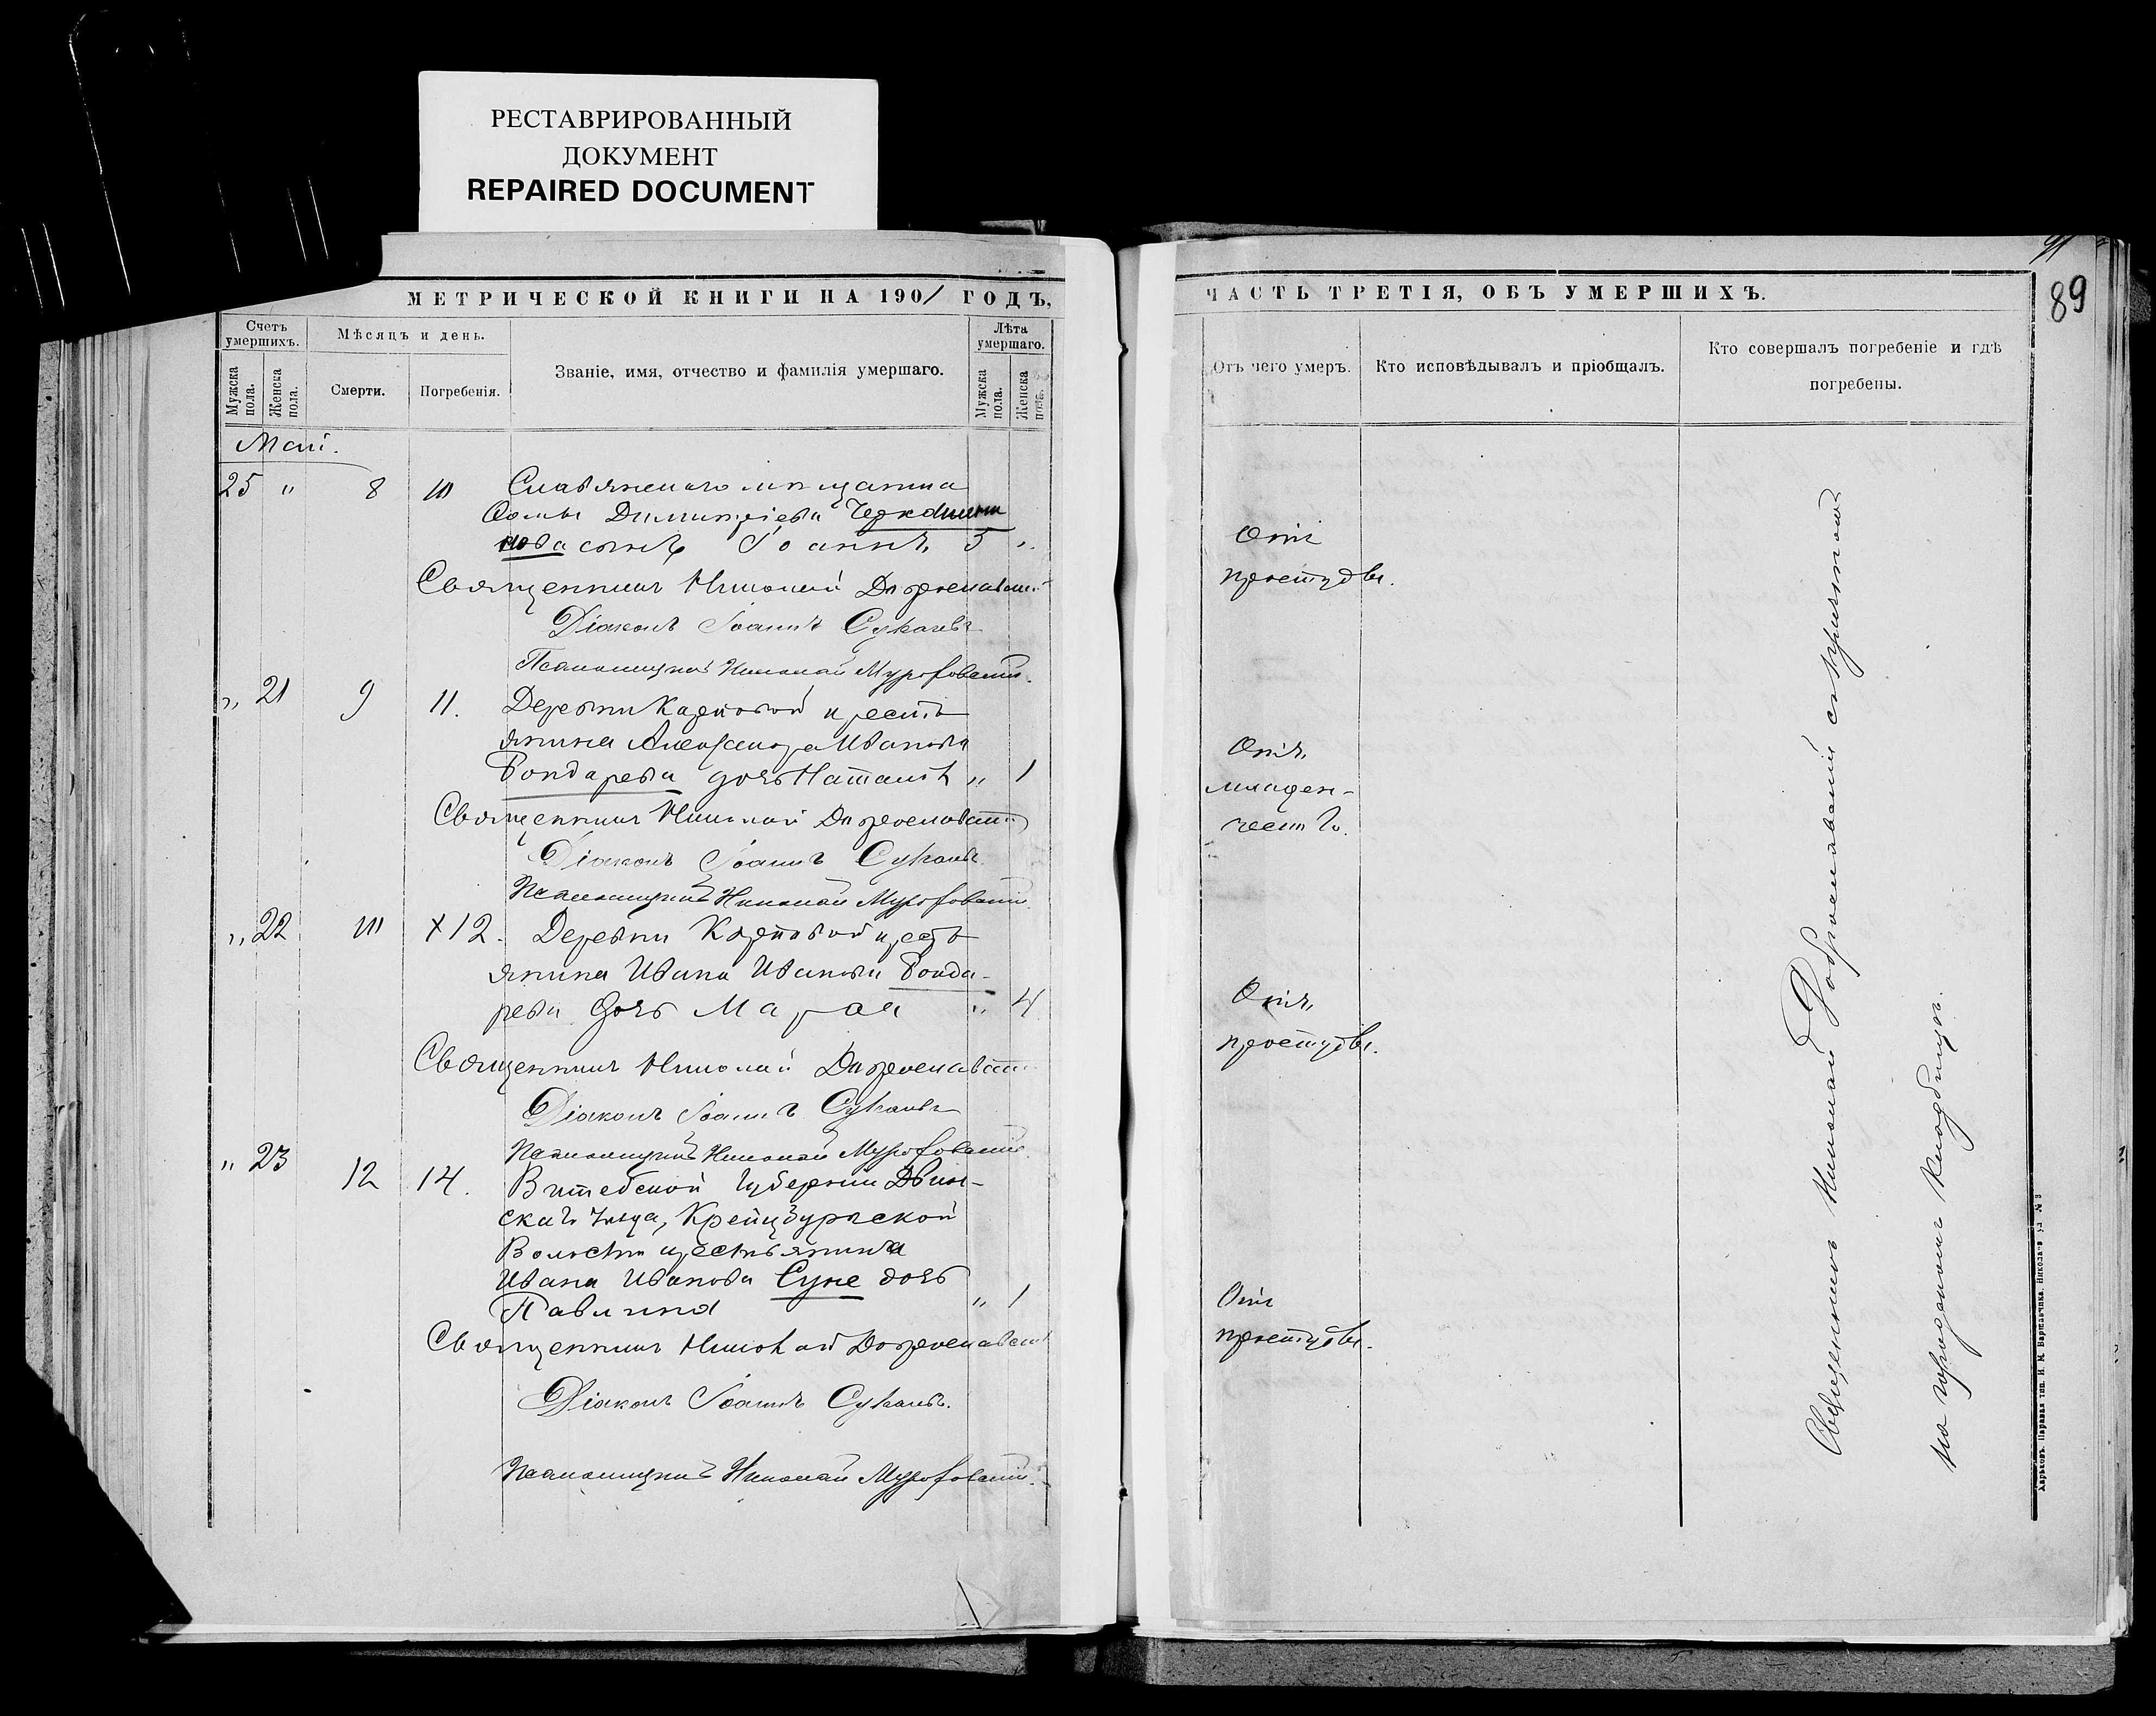 РЕСТАВРИРОВАННЫЙ
ДОКУМЕНТ
REPAIRED DOCUMENT
МЕТРИЧЕСКОЙ КНИГИ НА 1901 ГОДЪ,
Счетъ умершихъ.
Мужска пола.
Женска пола.
Мѣсяцъ и день.
Смерти.
Погребенія.
Званіе, имя, отчество и фамилія умершаго.
Лѣта умершаго.
Мужска пола.
Женска пола.
Май.
25 " 8 10 Славянскаго мѣщанина
Ѳомы Димитріева
сынъ Іоаннъ 5 "
Священникъ Николай Доброславскій
Діаконъ Іоаннъ Сукачевъ
Псаломщикъ Николай
" 21 9 11. Деревни Карповой кресть
янина Александра Иванова
Бондарева дочь Наталія " 1
Священникъ Николай Доброславскій
Діаконъ Іоаннъ Сукачевъ
Псаломщикъ Николай
" 22 10 +12. Деревни Карповой кресть
янина Ивана Иванова Бонда-
рева дочь Марѳа " 4
Священникъ Николай Доброславскій
Діаконъ Іоаннъ Сукачевъ
Псаломщикъ Николай
" 23 12 14. Витебской губерніи Двин-
скаго уѣзда, Крейцбургской
Волости крестьянина
Ивана Иванова Суне дочь
Павлина " 1
Священникъ Николай Доброславскій
Діаконъ Іоаннъ Сукачевъ.
Псаломщикъ Николай
ЧАСТЬ ТРЕТІЯ, ОБЪ УМЕРШИХЪ.
89
Отъ чего умеръ.
Кто исповѣдывалъ и пріобщалъ.
Кто совершалъ погребеніе и гдѣ
погребены.
Отъ
простуды.
Отъ
младен-
ческаго.
Отъ
простуды.
Отъ
простуды.
Священникъ Николай Доброславскій съ причтомъ
на городскомъ кладбищѣ.
Харьковъ. Паровая тип. И. М. Варшавчика. Николаев. ул. № 9